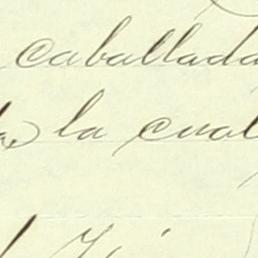 caballada
la cual